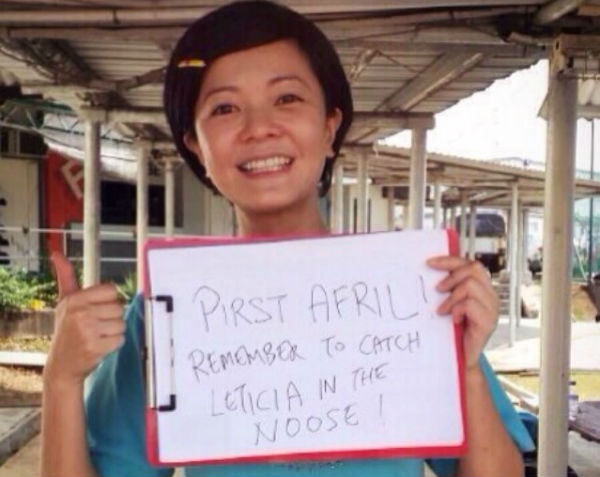 PIRST AFRIL!
REMEMBER TO CATCH
LETICIA IN THE
NOOSE!